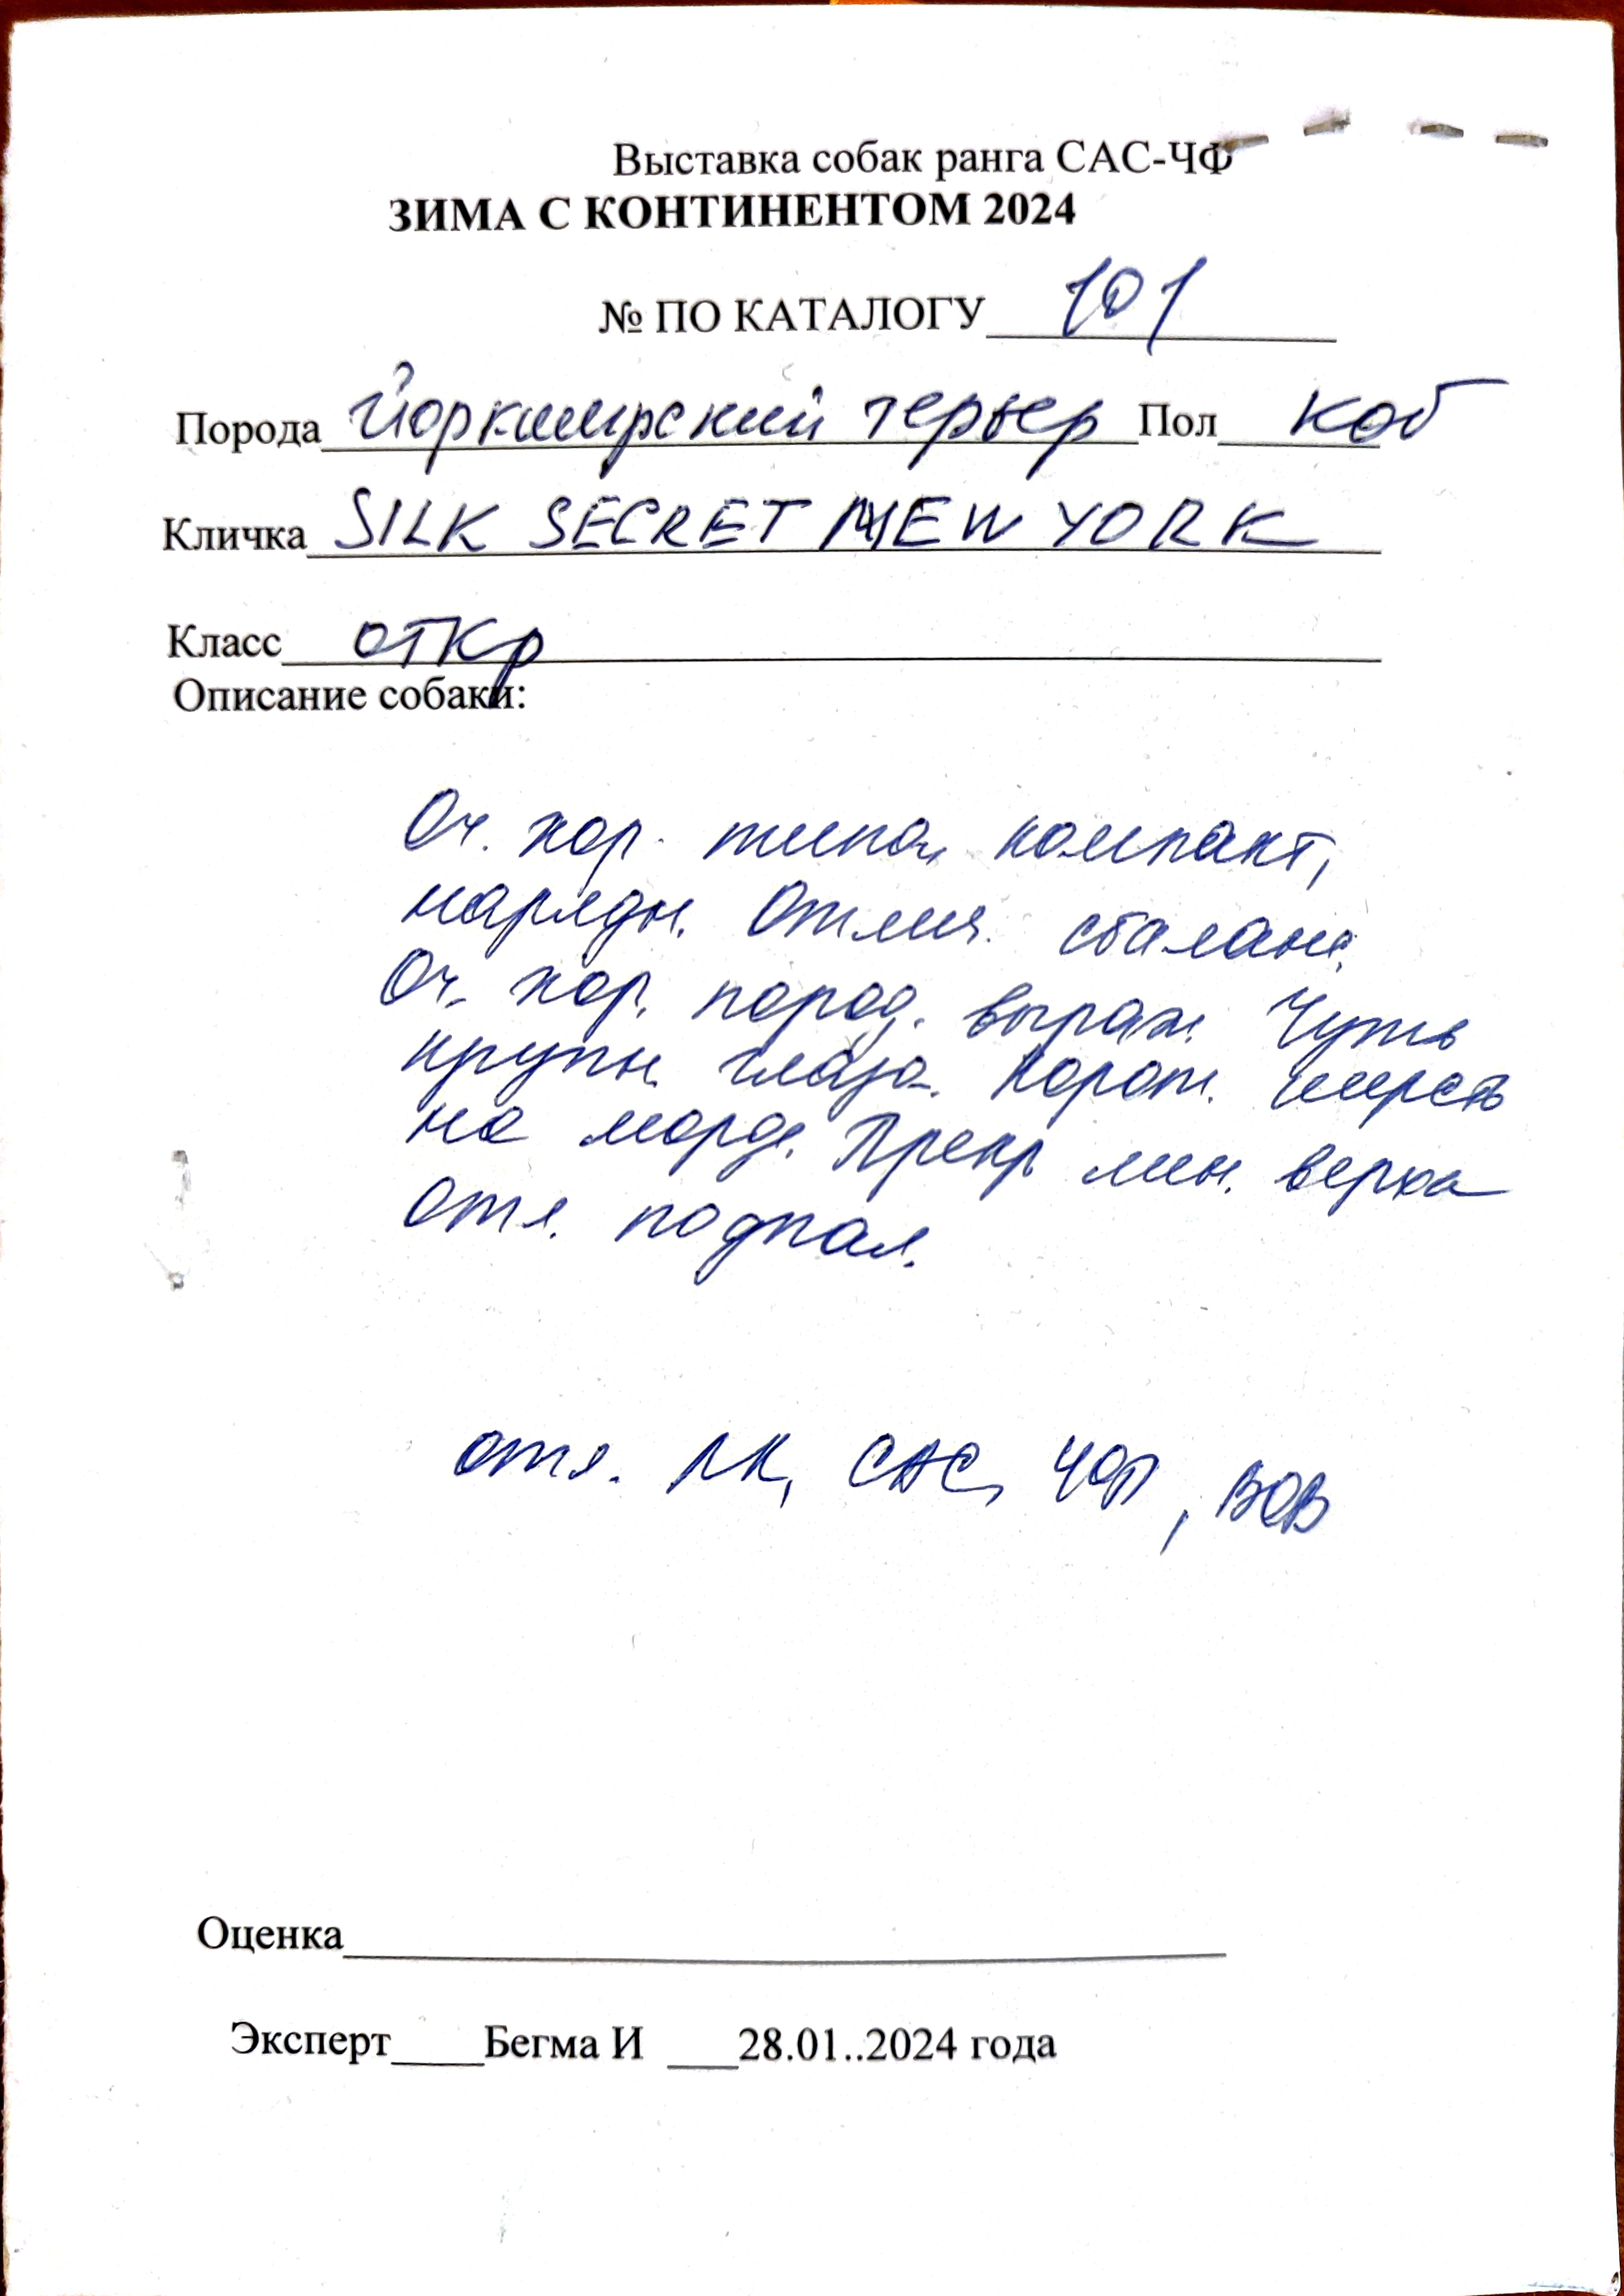 Выставка собак ранга САС-ЧФ
ЗИМА С КОНТИНЕНТОМ 2024
№ ПО КАТАЛОГУ 101
Порода Йоркширский терьер Пол коб
Кличка SILK SECRET NEW YORK
Класс откр
Описание собаки:
Оч. хор. типа, компакт,
нарядн. Отлич. сбаланс.
Оч. хор. пород. выраж. Чуть
крупн. глаза. Корот. шерсть
на морде. Прекр лин. верха
Отл. подпал.
отл. ЛК, САС, ЧФ, ВОВ
Оценка
Эксперт____Бегма И ___28.01..2024 года